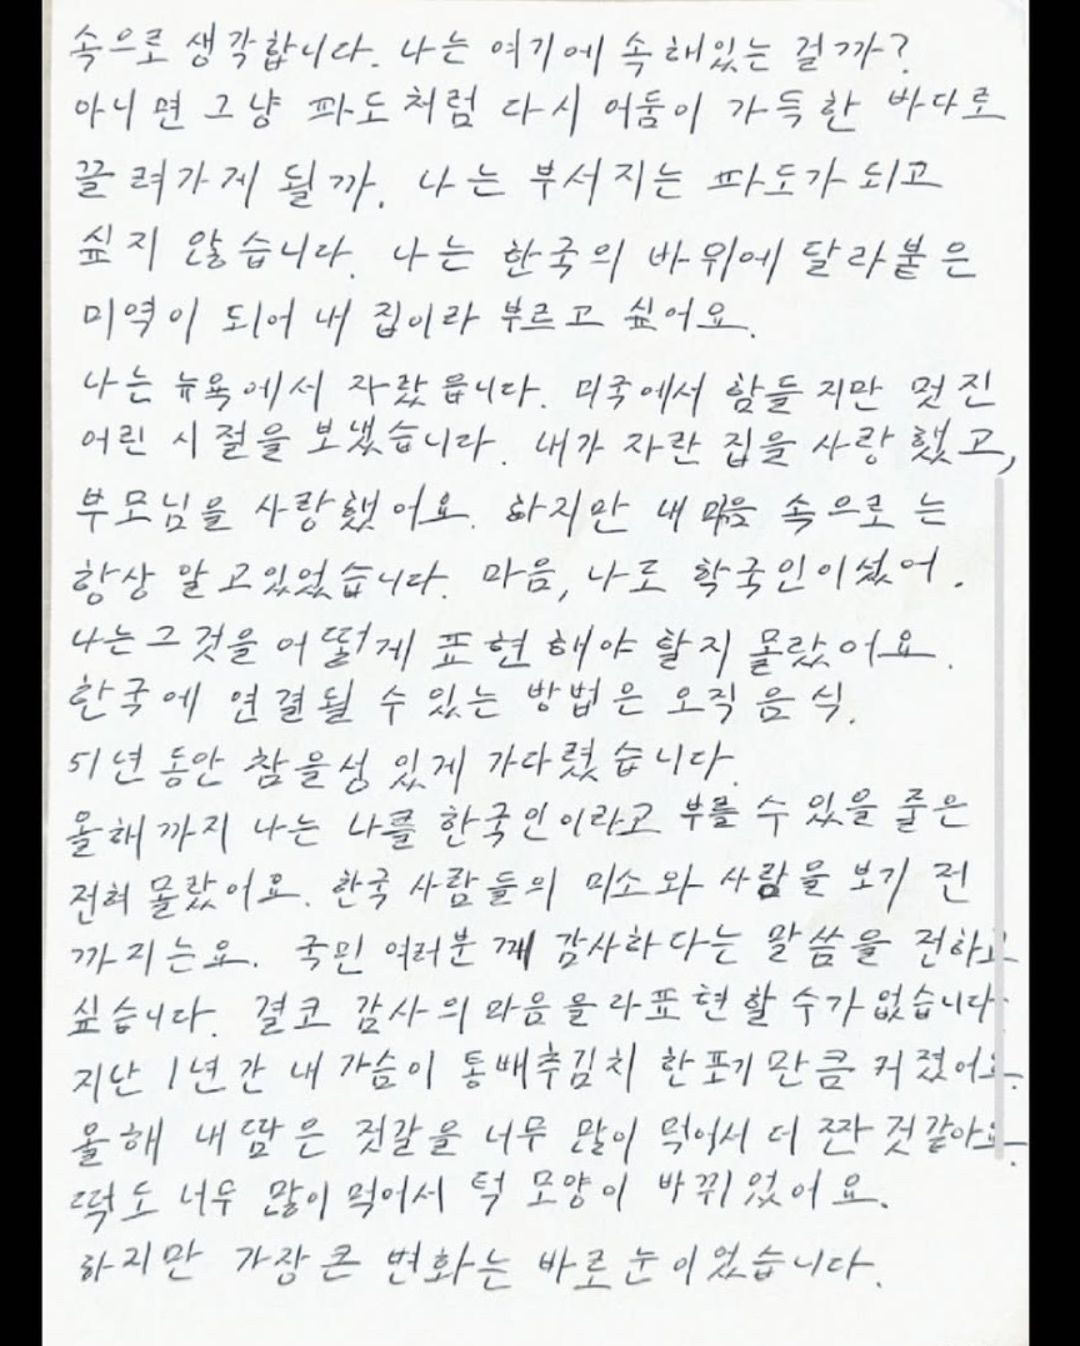 속으로 생각합니다. 나는 여기에 속해있는 걸까?
아니면 그냥 파도처럼 다시 어둠이 가득한 바다로
끌려가게 될까. 나는 부서지는 파도가 되고
싶지 않습니다. 나는 한국의 바위에 달라붙은
미역이 되어 내 집이라 부르고 싶어요.
나는 뉴욕에서 자랐읍니다. 미국에서 함들지만 멋진
어린 시절을 보냈습니다. 내가 자란 집을 사랑했고,
부모님을 사랑했어요. 하지만 내 마음 속으로는
항상 알고있었습니다. 마음, 나도 학국인이셨어.
나는 그것을 어떻게 표현해야 할지 몰랐어요.
한국에 연결될 수 있는 방법은 오직 음식.
51년 동안 참을성 있게 가다렸습니다.
올해까지 나는 나를 한국인이라고 부를 수 있을 줄은
전혀 몰랐어요. 한국 사람들의 미소와 사람을 보기 전
까지는요. 국민 여러분께 감사하다는 말씀을 전하고
싶습니다. 결코 감사의 마음을 라표현할 수가 없습니다
지난 1년간 내 가슴이 통배추김치 한 포기만큼 커졌어요.
올해 내 땀은 젓갈을 너무 많이 먹어서 더 짠 것같아요.
떡도 너무 많이 먹어서 턱 모양이 바뀌었어요.
하지만 가장 큰 변화는 바로 눈이었습니다.